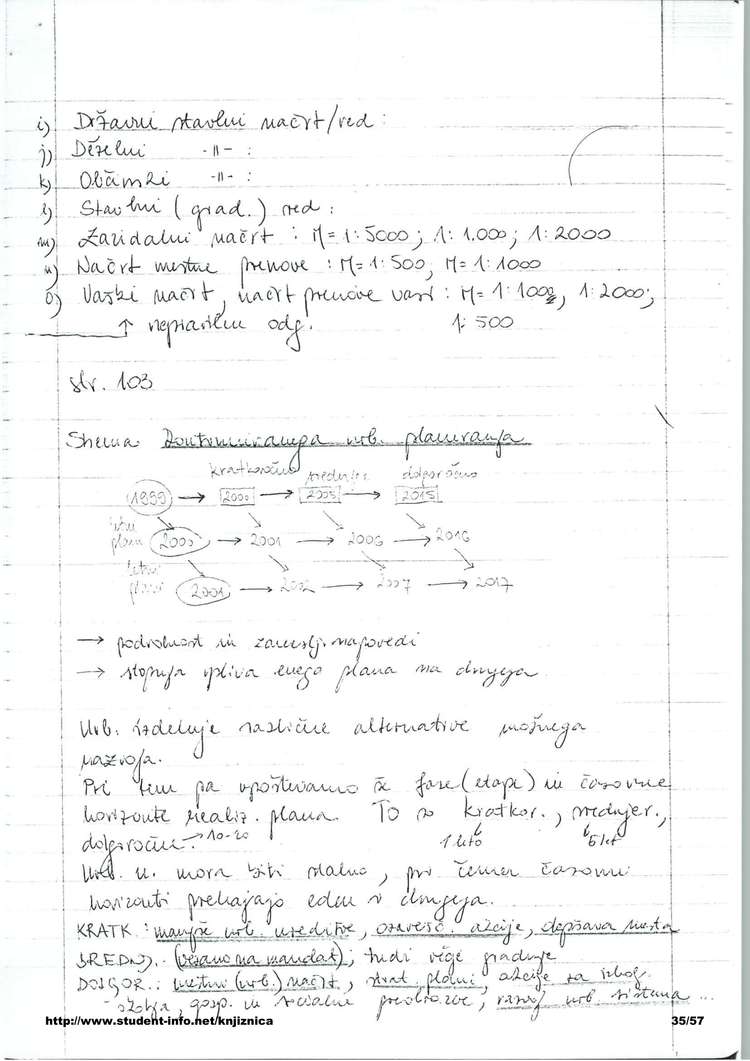 i) Državni stavbni načrt/red :
j) Deželni -11- :
k) Občinski -11- :
l) Stavbni (grad.) red :
m) Zazidalni načrt : M= 1:5000; 1:1.000; 1:2000
n) Načrt mestne prenove : M= 1:500, M= 1:1000
o) Vaški načrt, načrt prenove vasi : M= 1:1000, 1:2000;
↑ nepravilen odg. 1:500
str. 103
Shema kontinuiranega urb. planiranja
kratkoročno srednjer. dolgoročno
1999 → 2000 → 2005 → 2015
letni plani 2000 → 2001 → 2006 → 2016
letni plani 2001 → 2002 → 2007 → 2017
→ podrobnost in zaneslj. napovedi
→ stopnja vpliva enega plana na drugega
Urb. izdeluje različne alternative možnega
razvoja.
Pri tem pa upoštevamo še faze (etape) in časovne
horizonte realiz. plana. To so kratkor., srednjer.,
dolgoročni. → 10-20 1 leto 5 let
Urb. n. mora biti stalno, pri čemer časovni
horizonti prehajajo eden v drugega.
KRATK. : manjše urb. ureditve, akcije, mesta
SREDNJ. : (vezano na mandat); tudi večje gradnje
DOLGOR. : mestni (urb.) načrt, strat. plani, akcije za
gosp. in socialne preobrazbe, razvoj urb. sistema ...
http://www.student-info.net/knjiznica 35/57